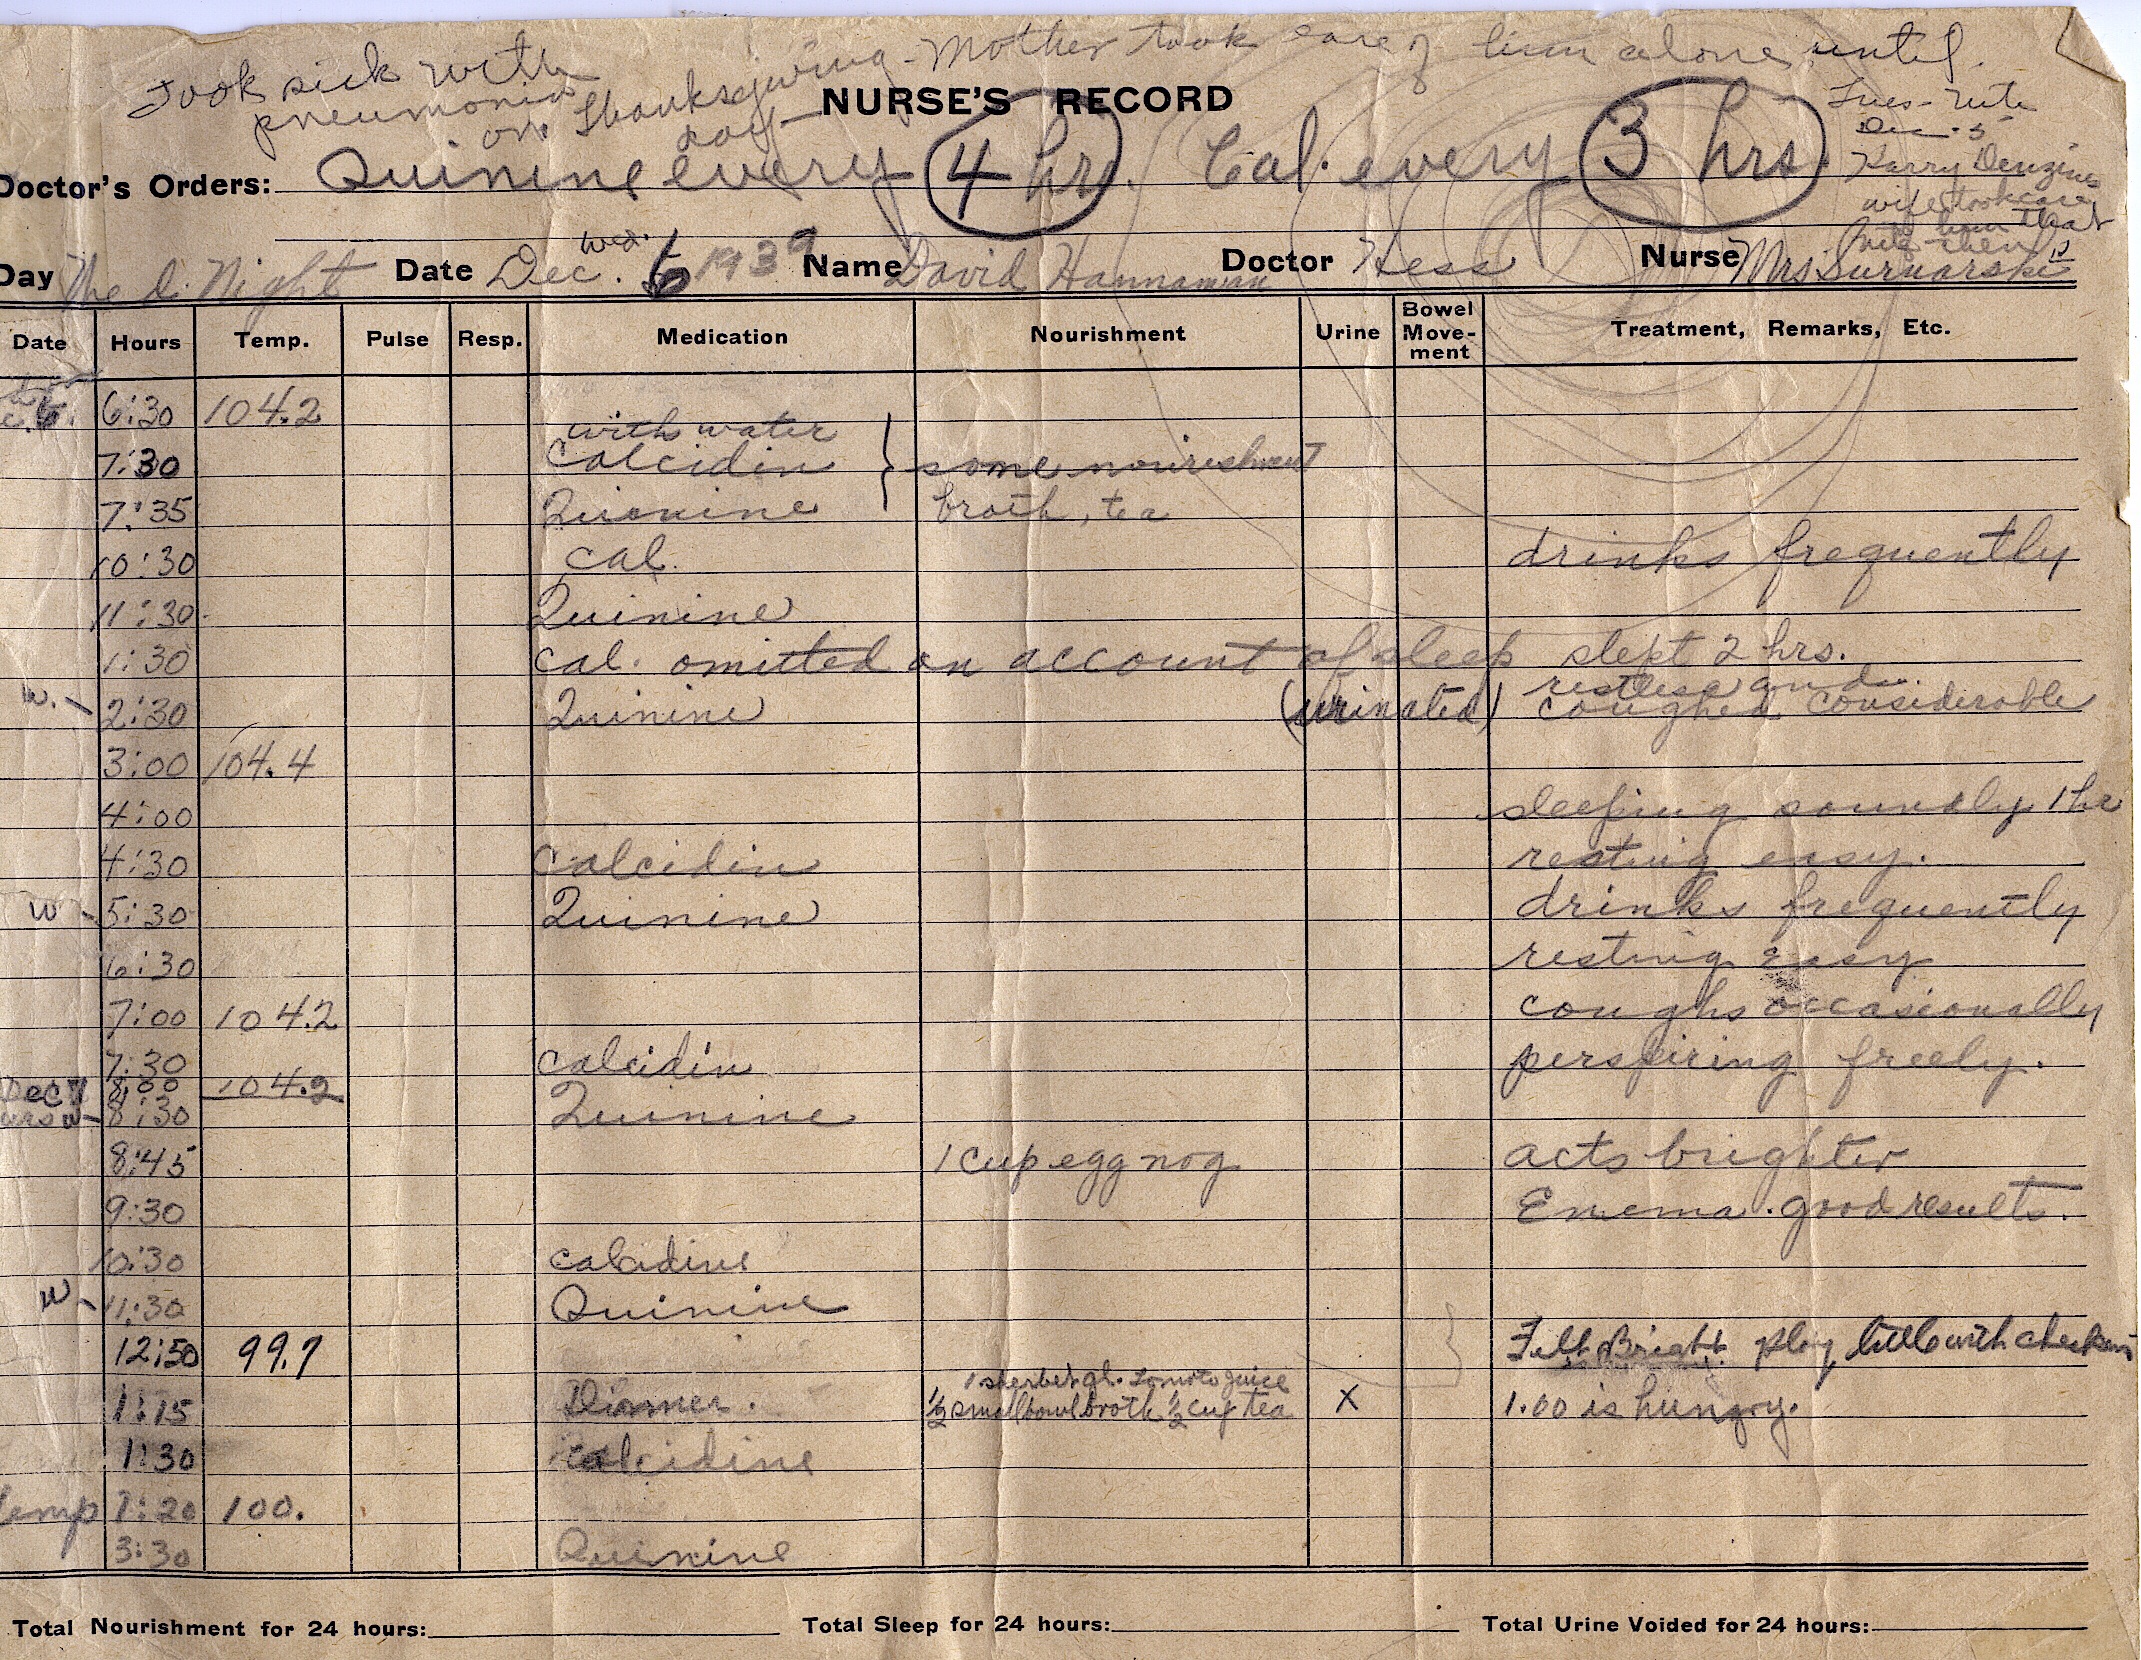 Took sick with pneumonia on Thanksgiving day - Mother took care of him alone until
Tues - nite
Dec. 5
Harry Denzines
wife took care
him that
nite - then
NURSE'S RECORD
Doctor's Orders: Quinine every 4 hr. Cal. every 3 hrs.
Wed.
Day Night Date Dec. 6 1939 Name David Hannaman Doctor Hess Nurse Mrs
Date Hours Temp. Pulse Resp. Medication Nourishment Urine Bowel Move-ment Treatment, Remarks, Etc.
6:30 104.2
with water
7:30 Calcidin } some nourishment
7:35 Quinine broth, tea
10:30 Cal. drinks frequently
11:30 Quinine
1:30 Cal. omitted on account of sleep slept 2 hrs.
restless and
w. - 2:30 Quinine (urinated) coughed considerable
3:00 104.4
4:00 sleeping soundly 1 hr
4:30 Calcidin resting easy.
w - 5:30 Quinine drinks frequently
6:30 resting easy
7:00 104.2 coughs occasionally
7:30 calcidin perspiring freely.
Dec 7 8:00 104.2
w - 8:30 Quinine
8:45 1 cup egg nog acts brighter
9:30 Enema. good results.
10:30 calcidine
w - 11:30 Quinine
12:50 99.7 Felt Bright. play little with checkers
1 sherbet gl. tomato juice
1:15 Dinner. ½ small bowl broth ½ cup tea X 1.00 is hungry.
1:30 calcidine
temp 1:20 100.
3:30 Quinine
Total Nourishment for 24 hours: Total Sleep for 24 hours: Total Urine Voided for 24 hours: